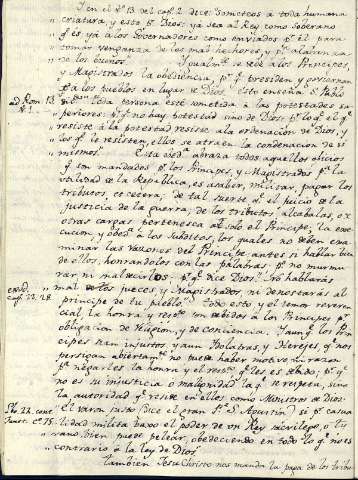 Y en el v.º 13. del cap.º 2. dice: Someteos a toda humana
criatura, y esto p.r Dios: yá sea al Rey como soberano
q.e es, yá a los Governadores como enviados p.r el para
tomar venganza de los mal hechores, y p.a alabanza
de los buenos. Igualm.te se debe a los Principes,
y Magistrados la obediencia, p.r q.e presiden, y goviernan
a los pueblos en lugar de Dios: esto enseña S. Pablo
ad Rom. 13.
toda persona esté sometida a las potestades su
periores: P.r q.e no hay potestad sino de Dios: p.r lo q.e el q.e
resiste á la potestad resiste a la ordenacion de Dios, y
los q.e le resisten, ellos se atraen la condenacion de si
mismos. Esta obed.a abraza todos aquellos oficios
q.e son mandados p.r los Principes, y Magistrados p.a la
utilidad de la Republica, es a saber, militar, pagar los
tributos, et cetera; de tal suerte q.e el juicio de la
justicia de la guerra, de los tributos, alcabalas, ú
otras cargas pertenesca al solo el Principe, la exe
cucion, y obed.a á los Subditos, los quales no deben exa
minar las razones del Principe, antes si hablar bien
de ellos, honrandolos con las palabras, p.a no murmu
rar ni maldecirlos p.r q.e dice Dios: No hablarás
Exod. cap. 22. 28.
mal de los jueces, y Magistrados, ni denostarás al
principe de tu pueblo. Todo esto, y el temor reveren
cial, la honra y resp.to son debidos a los Principes p.r
obligacion de Religion, y de conciencia. Y aunq.e los Prin
cipes sean injustos, y aun Idolatras, y Herejes, q.e nos
persigan abiertam.te no puede haber motivo, ni razon
p.a negarles la honra y el resp.to q.e les es debido; p.r q.e
no es su injusticia o malignidad la q.e se respeta, sino
la autoridad q.e reside en ellos como Ministros de Dios:
El varon justo (dice el gran P. S. Agustin) si p.r casua
Lib. 22. cont. Faust. c. 75.
lidad milita baxo el poder de un Rey sacrilego, o ti
rano, bien puede pelear, obedeciendo en todo lo q.e no es
contrario á la ley de Dios.
Tambien Jesu Christo nos manda la paga de los tribu